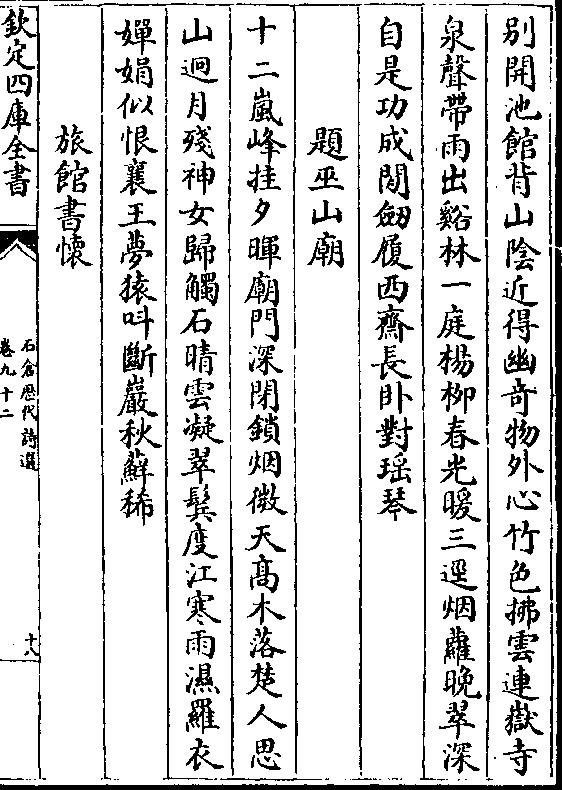 別開池館背山陰近得幽奇物外心竹色拂雲連嶽寺
泉聲帶雨出谿林一庭楊柳春光暖三逕烟蘿晚翠深
自是功成閒劒履西齋長卧對瑶琴
題巫山廟
十二嵐峰挂夕暉廟門深閉鎖烟微天髙木落楚人思
山迥月殘神女歸觸石晴雲凝翠鬂度江寒雨濕羅衣
嬋娟似恨襄王夢猿呌斷巖秋蘚稀
旅館書懷
欽定四庫全書
石倉歴代詩選
卷九十二
十八